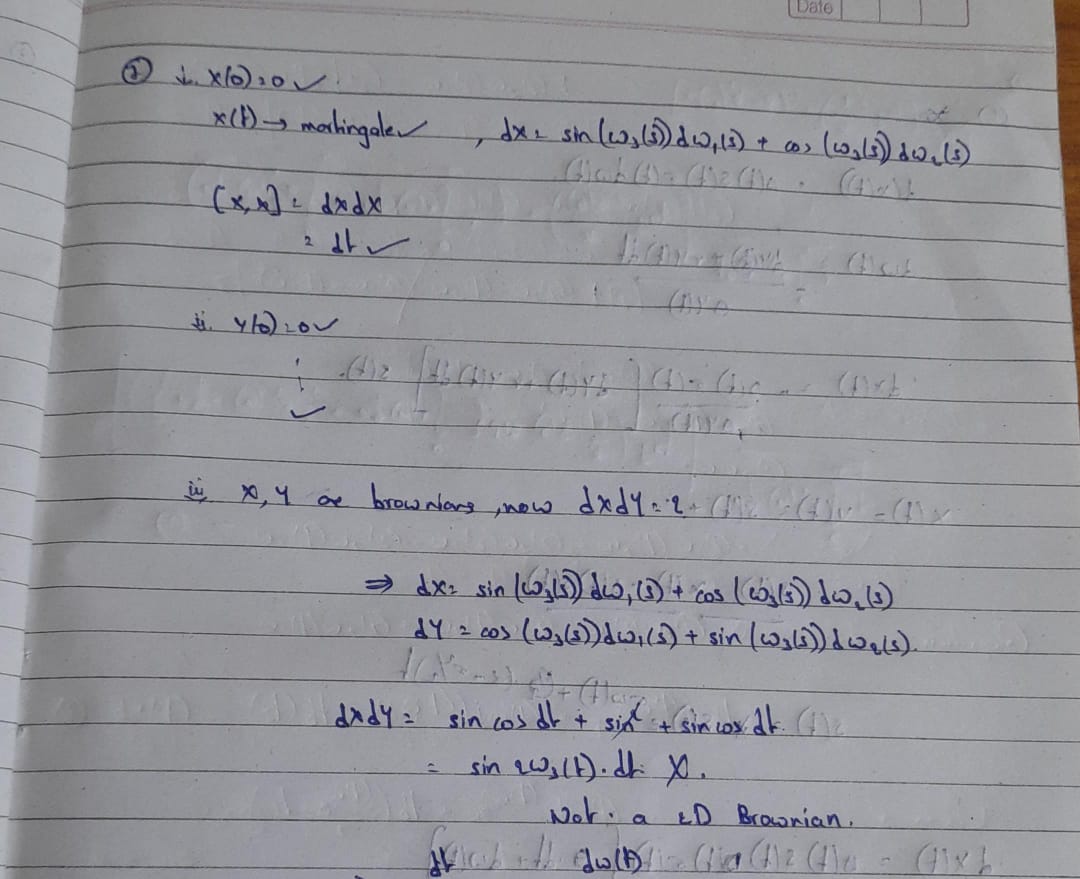 Date
② i. x(0) = 0 ✓
x(t) → martingale ✓ , dx = sin(ω₃(s)) dω₁(s) + cos(ω₃(s)) dω₂(s)
[x, x] = dxdx
= dt ✓
ii. y(0) = 0 ✓
⋮
✓
iii x, y are brownians, now dxdy = ?
⇒ dx = sin(ω₃(s)) dω₁(s) + cos(ω₃(s)) dω₂(s)
dy = cos(ω₃(s)) dω₁(s) + sin(ω₃(s)) dω₂(s).
dxdy = sin cos dt + + sin cos dt.
= sin 2ω₃(t). dt. X.
Not a 2D Brownian.
dt dω(t)